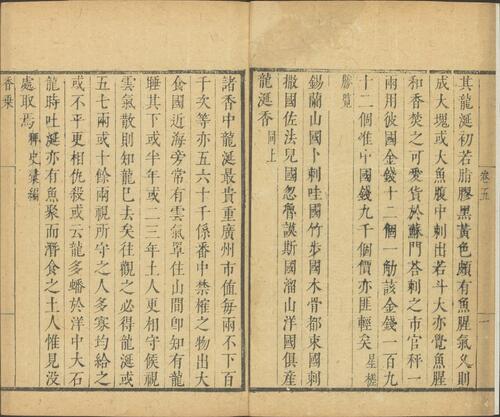 其龍涎初若脂膠黑黃色頗有魚腥氣久則
成大塊或大魚腹中刺出若斗大亦覺魚腥
和香焚之可愛貨於蘇門荅剌之市官秤一
兩用彼國金錢十二個一觔該金錢一百九
十二個准中國錢九千個價亦匪輕矣星槎
勝覽
錫蘭山國卜剌哇國竹步國木骨都束國剌
撒國佐法兒國忽魯謨斯國溜山洋國俱產
龍涎香同上
卷五
一
諸香中龍涎最貴重廣州市值每兩不下百
千次等亦五六十千係番中禁榷之物出大
食國近海旁常有雲氣罩住山間卽知有龍
睡其下或半年或二三年土人更相守候視
雲氣散則知龍已去矣往觀之必得龍涎或
五七兩或十餘兩視所守之人多寡均給之
或不平更相仇殺或云龍多蟠於洋中大石
龍時吐涎亦有魚聚而潛食之土人惟見没
處取焉稗史彙編
香乗